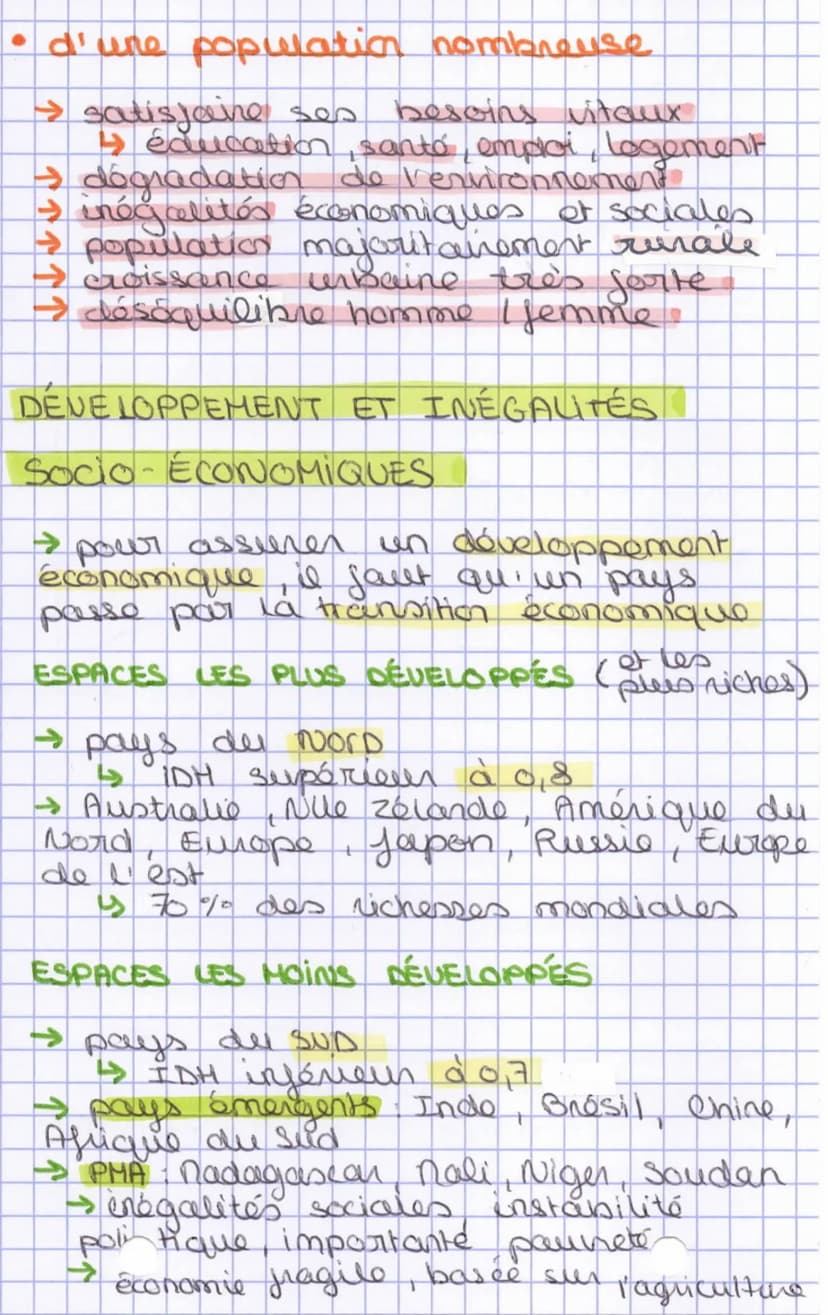 • d'une population nombreuse
→ satisfaire ses besoins vitaux
↳ éducation, santé, emploi, logement
→ dégradation de l'environnement
→ inégalités économiques et sociales
→ population majoritairement rurale
→ croissance urbaine très forte
→ déséquilibre homme / femme
DÉVELOPPEMENT ET INÉGALITÉS
SOCIO-ÉCONOMIQUES
→ pour assurer un développement
économique, il faut qu'un pays
passe par la transition économique
ESPACES LES PLUS DÉVELOPPÉS (et les
plus riches)
→ pays du NORD
↳ IDH supérieur à 0,8
→ Australie, Nlle zélande, Amérique du
Nord, Europe, Japon, Russie, Europe
de l'est
↳ 70 % des richesses mondiales
ESPACES LES MOINS DÉVELOPPÉS
→ pays du SUD
↳ IDH inférieur à 0,7
→ pays émergents : Inde, Brésil, Chine,
Afrique du Sud
→ PMA : Madagascar, Mali, Niger, Soudan
→ inégalités sociales, instabilité
politique, importante pauvreté
→ économie fragile, basée sur l'agriculture